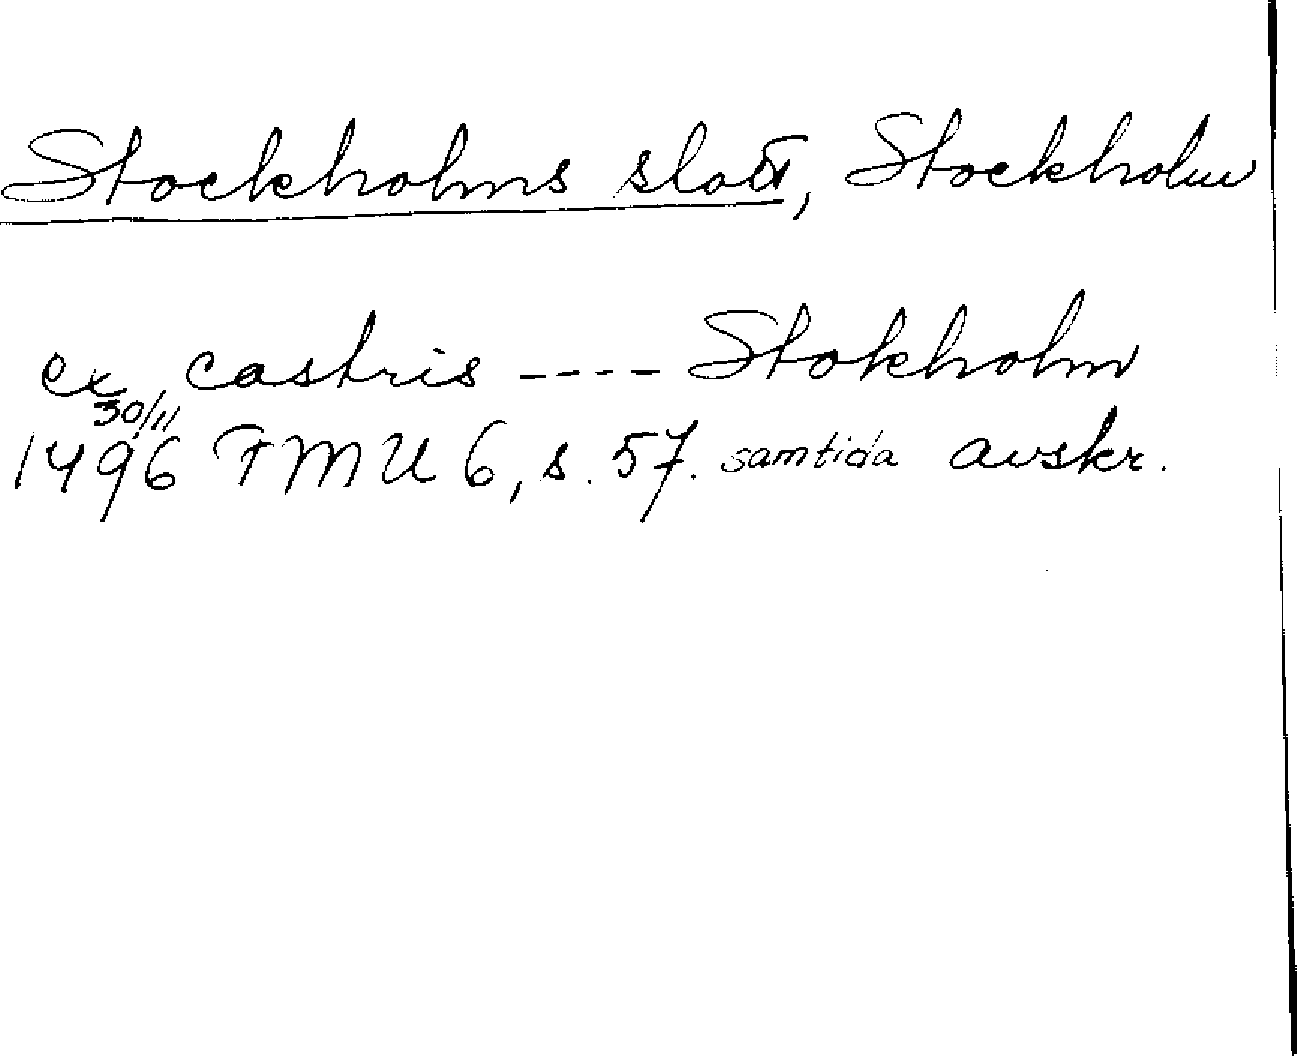 Stockholms slott, Stockholm
ex castris ---- Stokholm
30/11
1496 FMU 6, s. 57. samtida avskr.